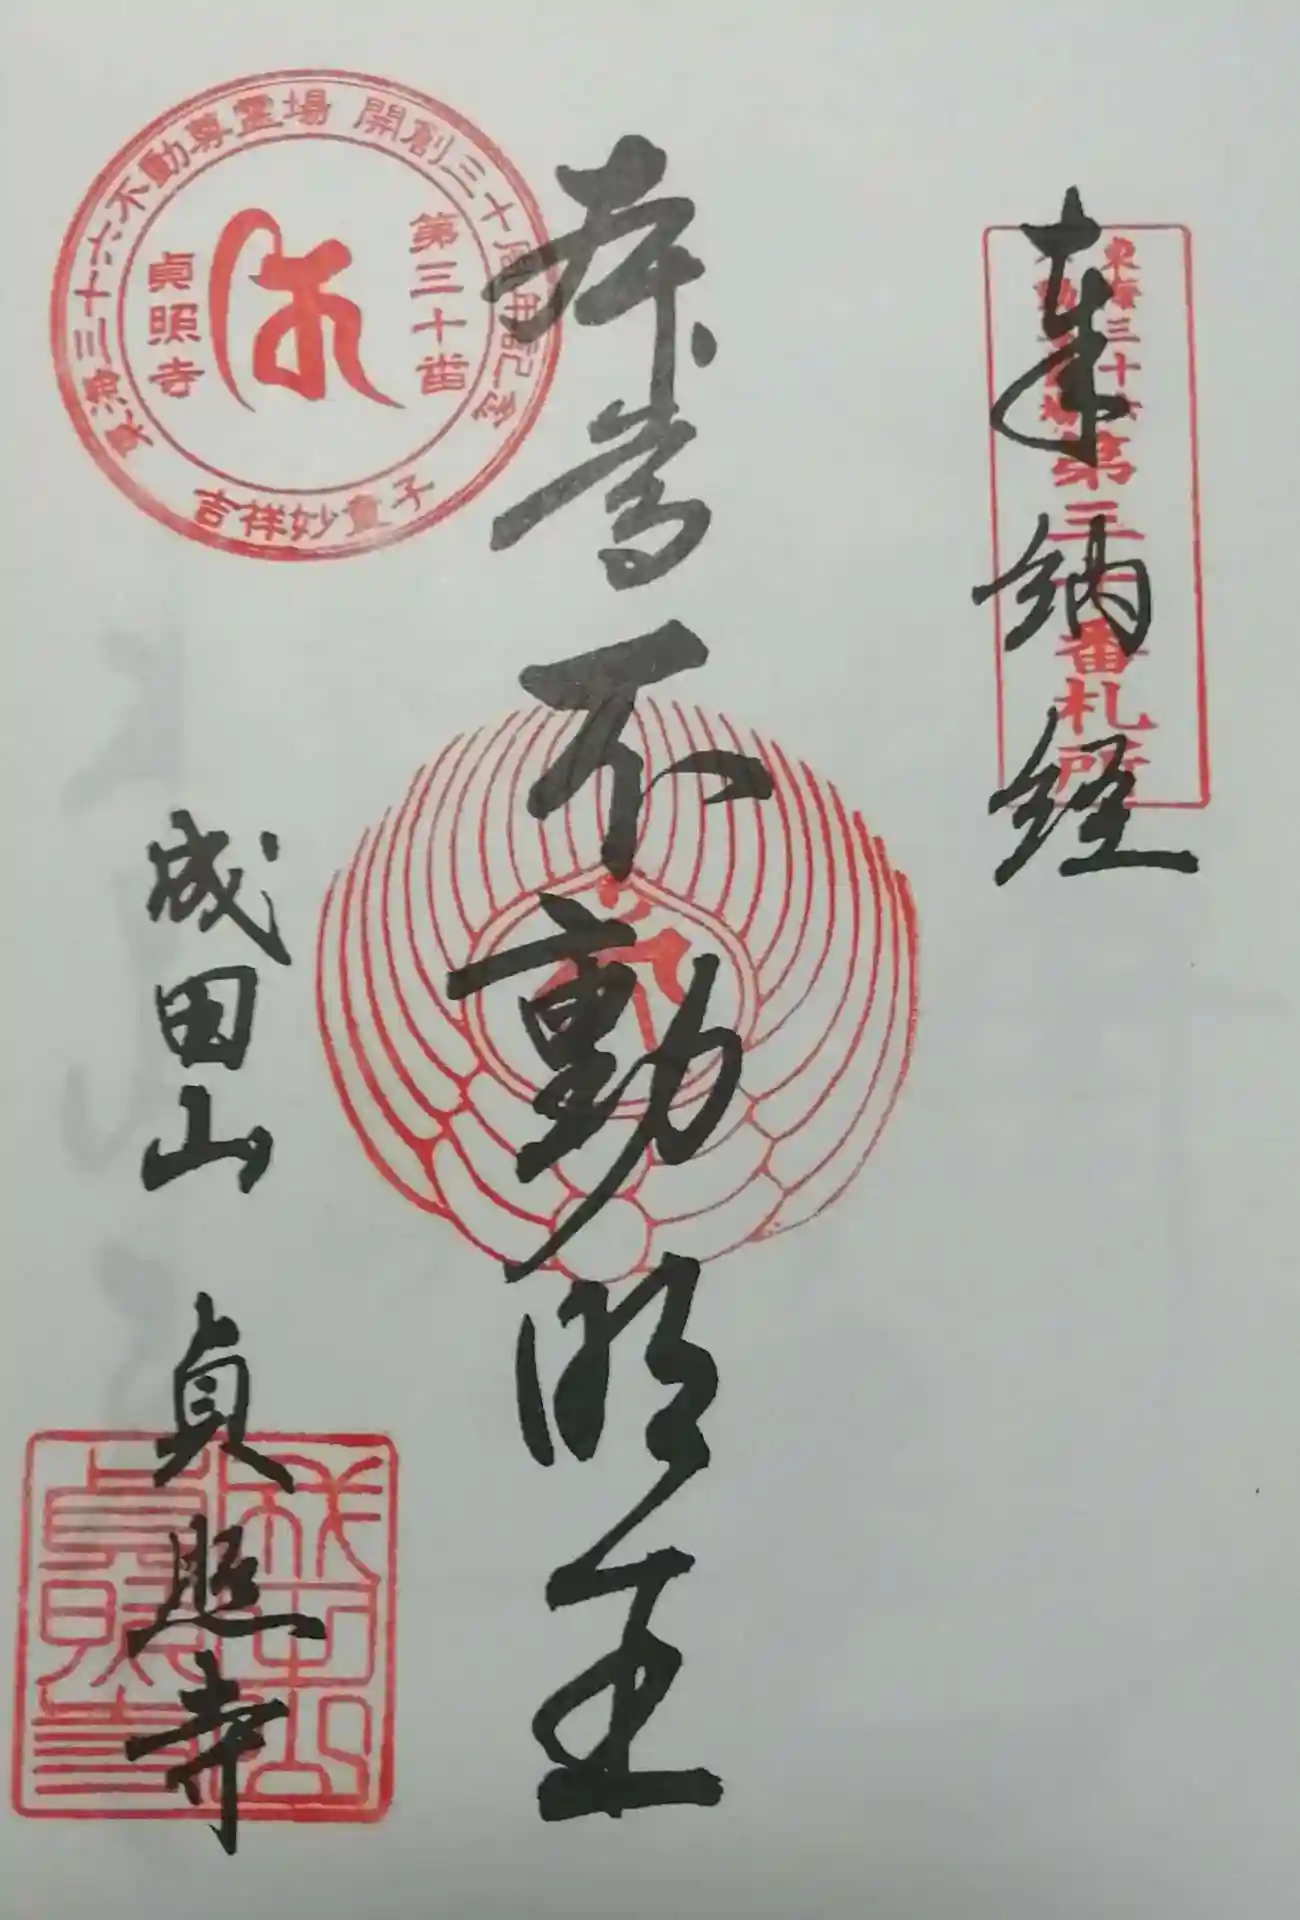 奉納経
東海三十六
不動尊霊場
第三十番札所
本尊不動明王
東海三十六不動尊霊場 開創三十周年記念
第三十番
貞照寺
吉祥妙童子
成田山 貞照寺
成田山
貞照寺